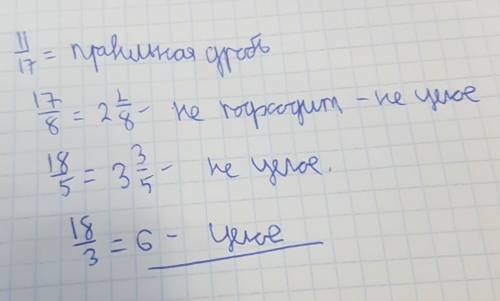 11/17 = правильная дробь
17/8 = 2 1/8 - не подходит - не целое
18/5 = 3 3/5 - не целое.
18/3 = 6 - целое